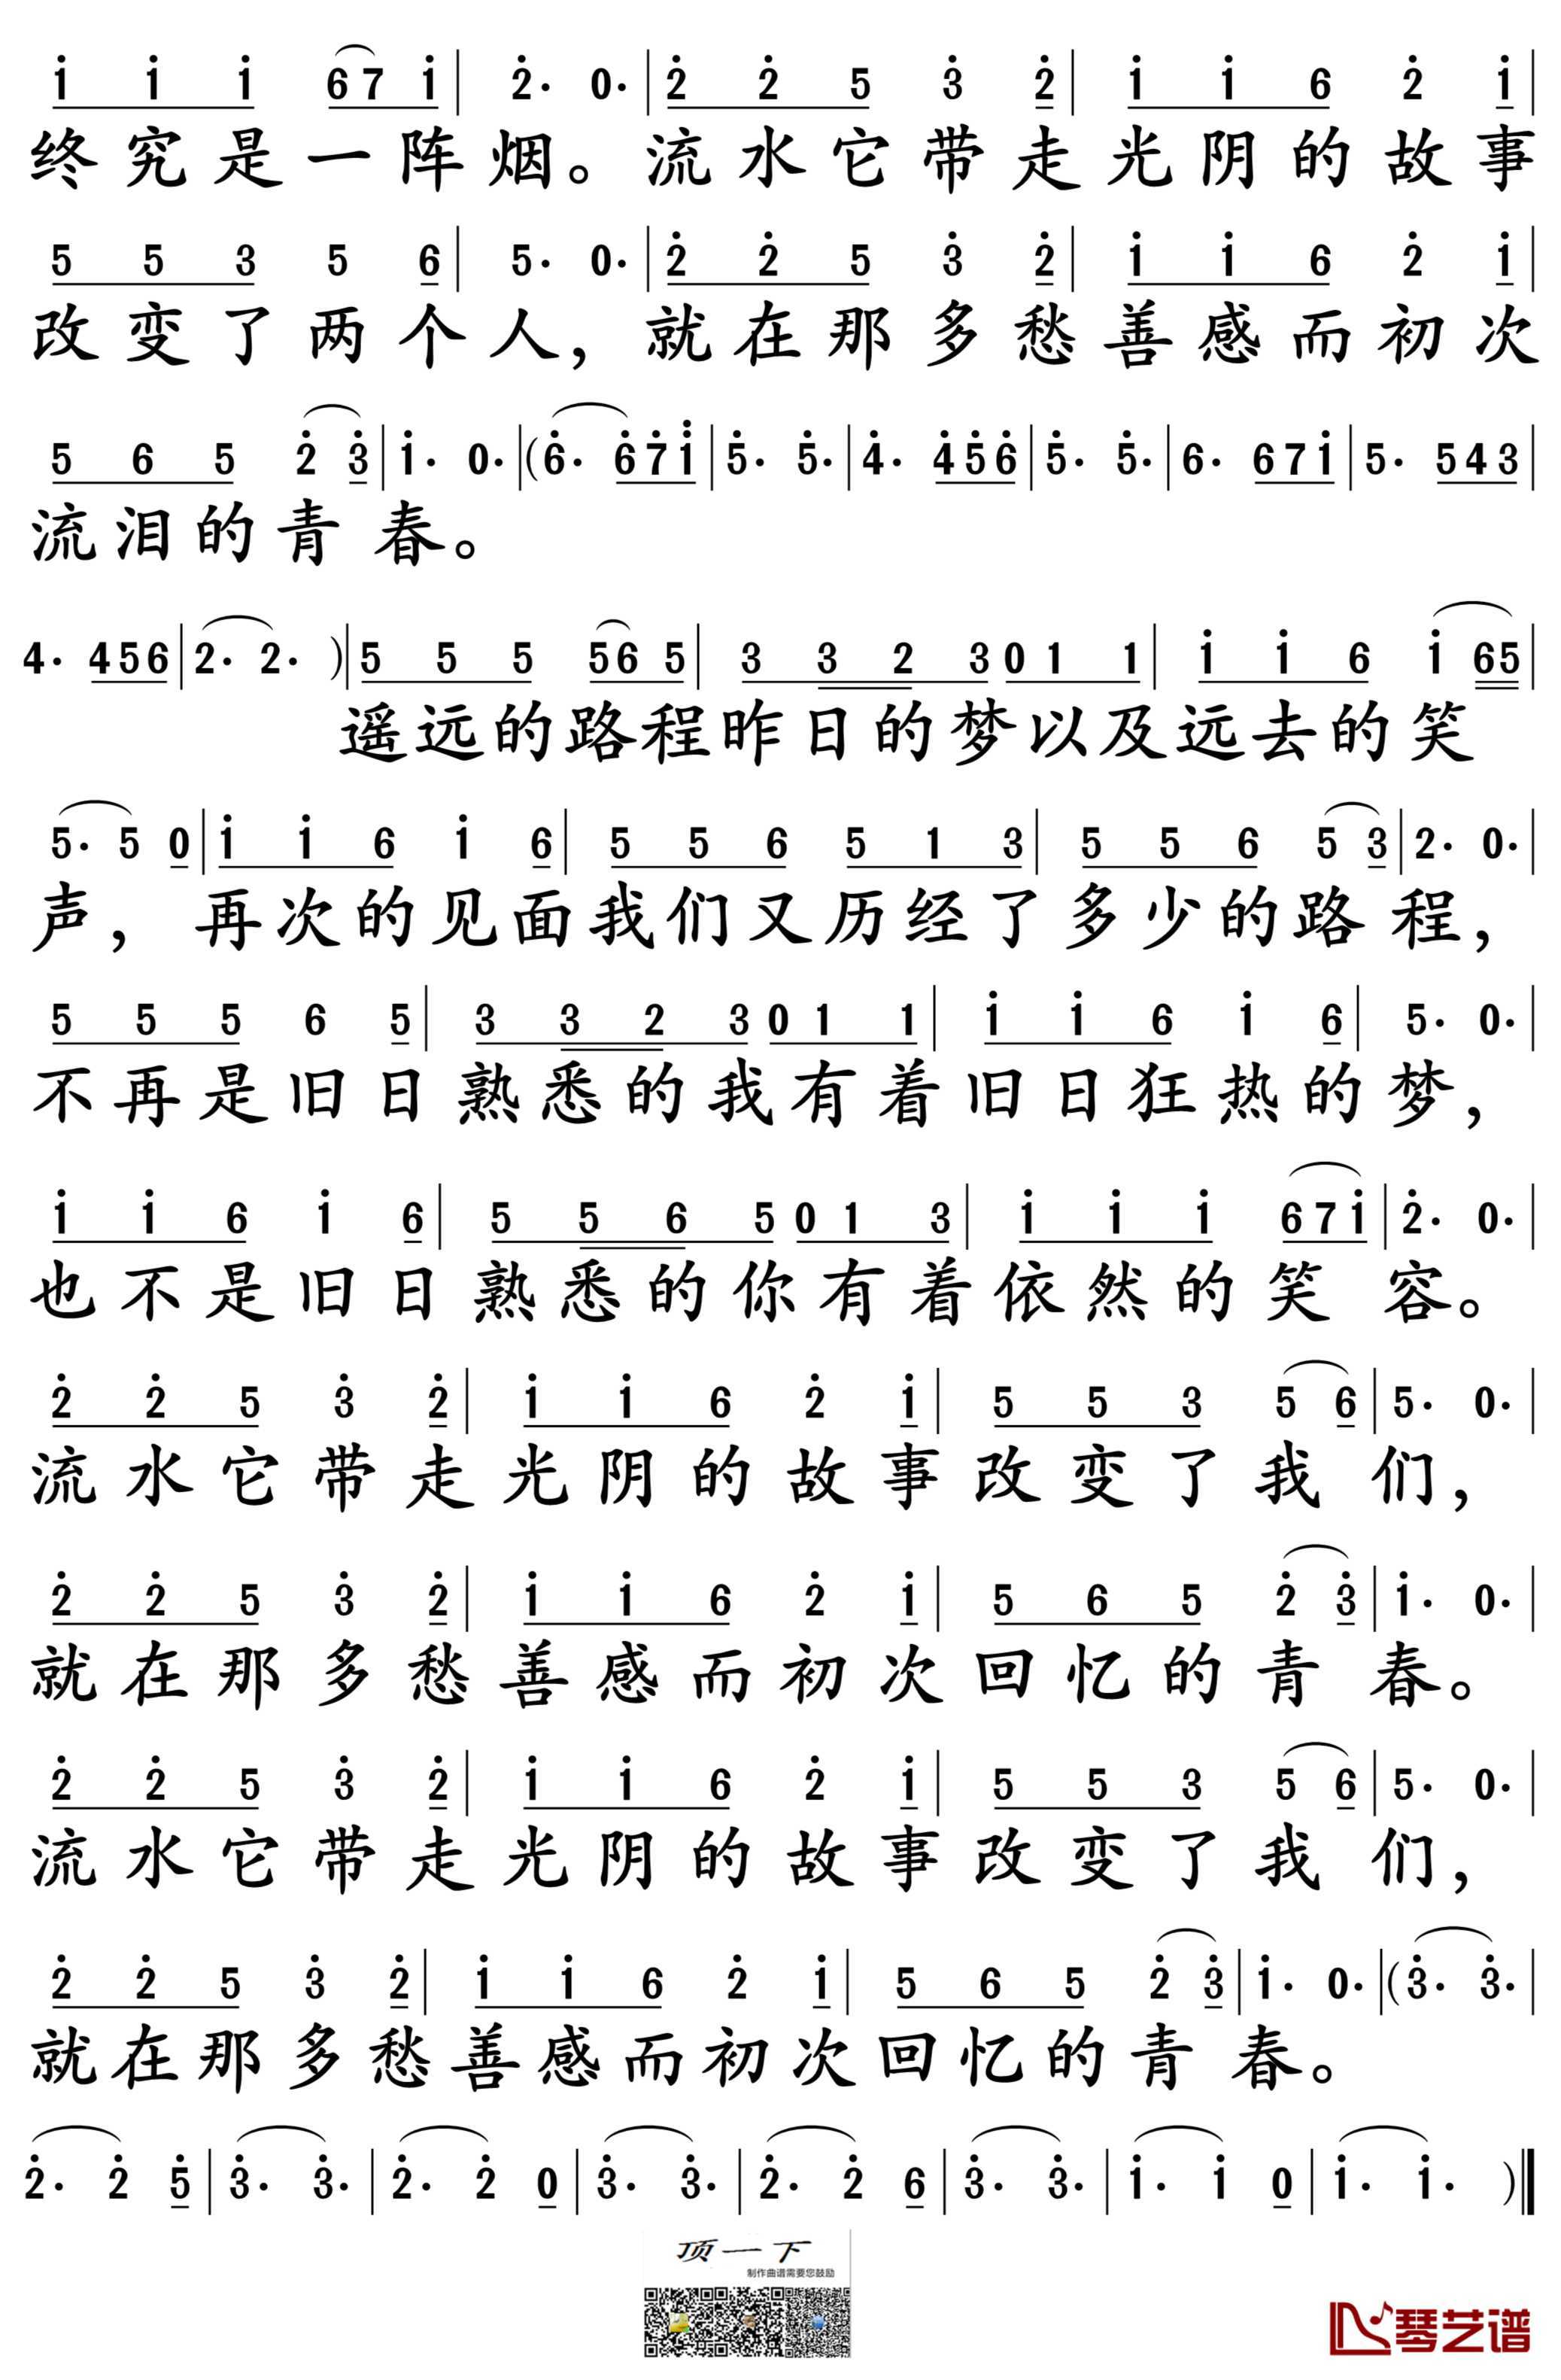 i i i 67 i | 2· 0· | 2 2 5 3 2 | i i 6 2 i |
终究是一阵烟。流水它带走光阴的故事
5 5 3 5 6 | 5· 0· | 2 2 5 3 2 | i i 6 2 i |
改变了两个人，就在那多愁善感而初次
5 6 5 2 3 | i· 0· | (6· 67i | 5· 5· | 4· 456 | 5· 5· | 6· 67i | 5· 543 |
流泪的青春。
4· 456 | 2· 2· ) | 5 5 5 56 5 | 3 3 2 3 0 1 1 | i i 6 i 65 |
遥远的路程昨日的梦以及远去的笑
5· 5 0 | i i 6 i 6 | 5 5 6 5 1 3 | 5 5 6 5 3 | 2· 0· |
声，再次的见面我们又历经了多少的路程，
5 5 5 6 5 | 3 3 2 3 0 1 1 | i i 6 i 6 | 5· 0· |
不再是旧日熟悉的我有着旧日狂热的梦，
i i 6 i 6 | 5 5 6 5 0 1 3 | i i i 67i | 2· 0· |
也不是旧日熟悉的你有着依然的笑容。
2 2 5 3 2 | i i 6 2 i | 5 5 3 5 6 | 5· 0· |
流水它带走光阴的故事改变了我们，
2 2 5 3 2 | i i 6 2 i | 5 6 5 2 3 | i· 0· |
就在那多愁善感而初次回忆的青春。
2 2 5 3 2 | i i 6 2 i | 5 5 3 5 6 | 5· 0· |
流水它带走光阴的故事改变了我们，
2 2 5 3 2 | i i 6 2 i | 5 6 5 2 3 | i· 0· | (3· 3· |
就在那多愁善感而初次回忆的青春。
2· 2 5 | 3· 3· | 2· 2 0 | 3· 3· | 2· 2 6 | 3· 3· | i· i 0 | i· i· )
顶一下
制作曲谱需要您鼓励
琴艺谱